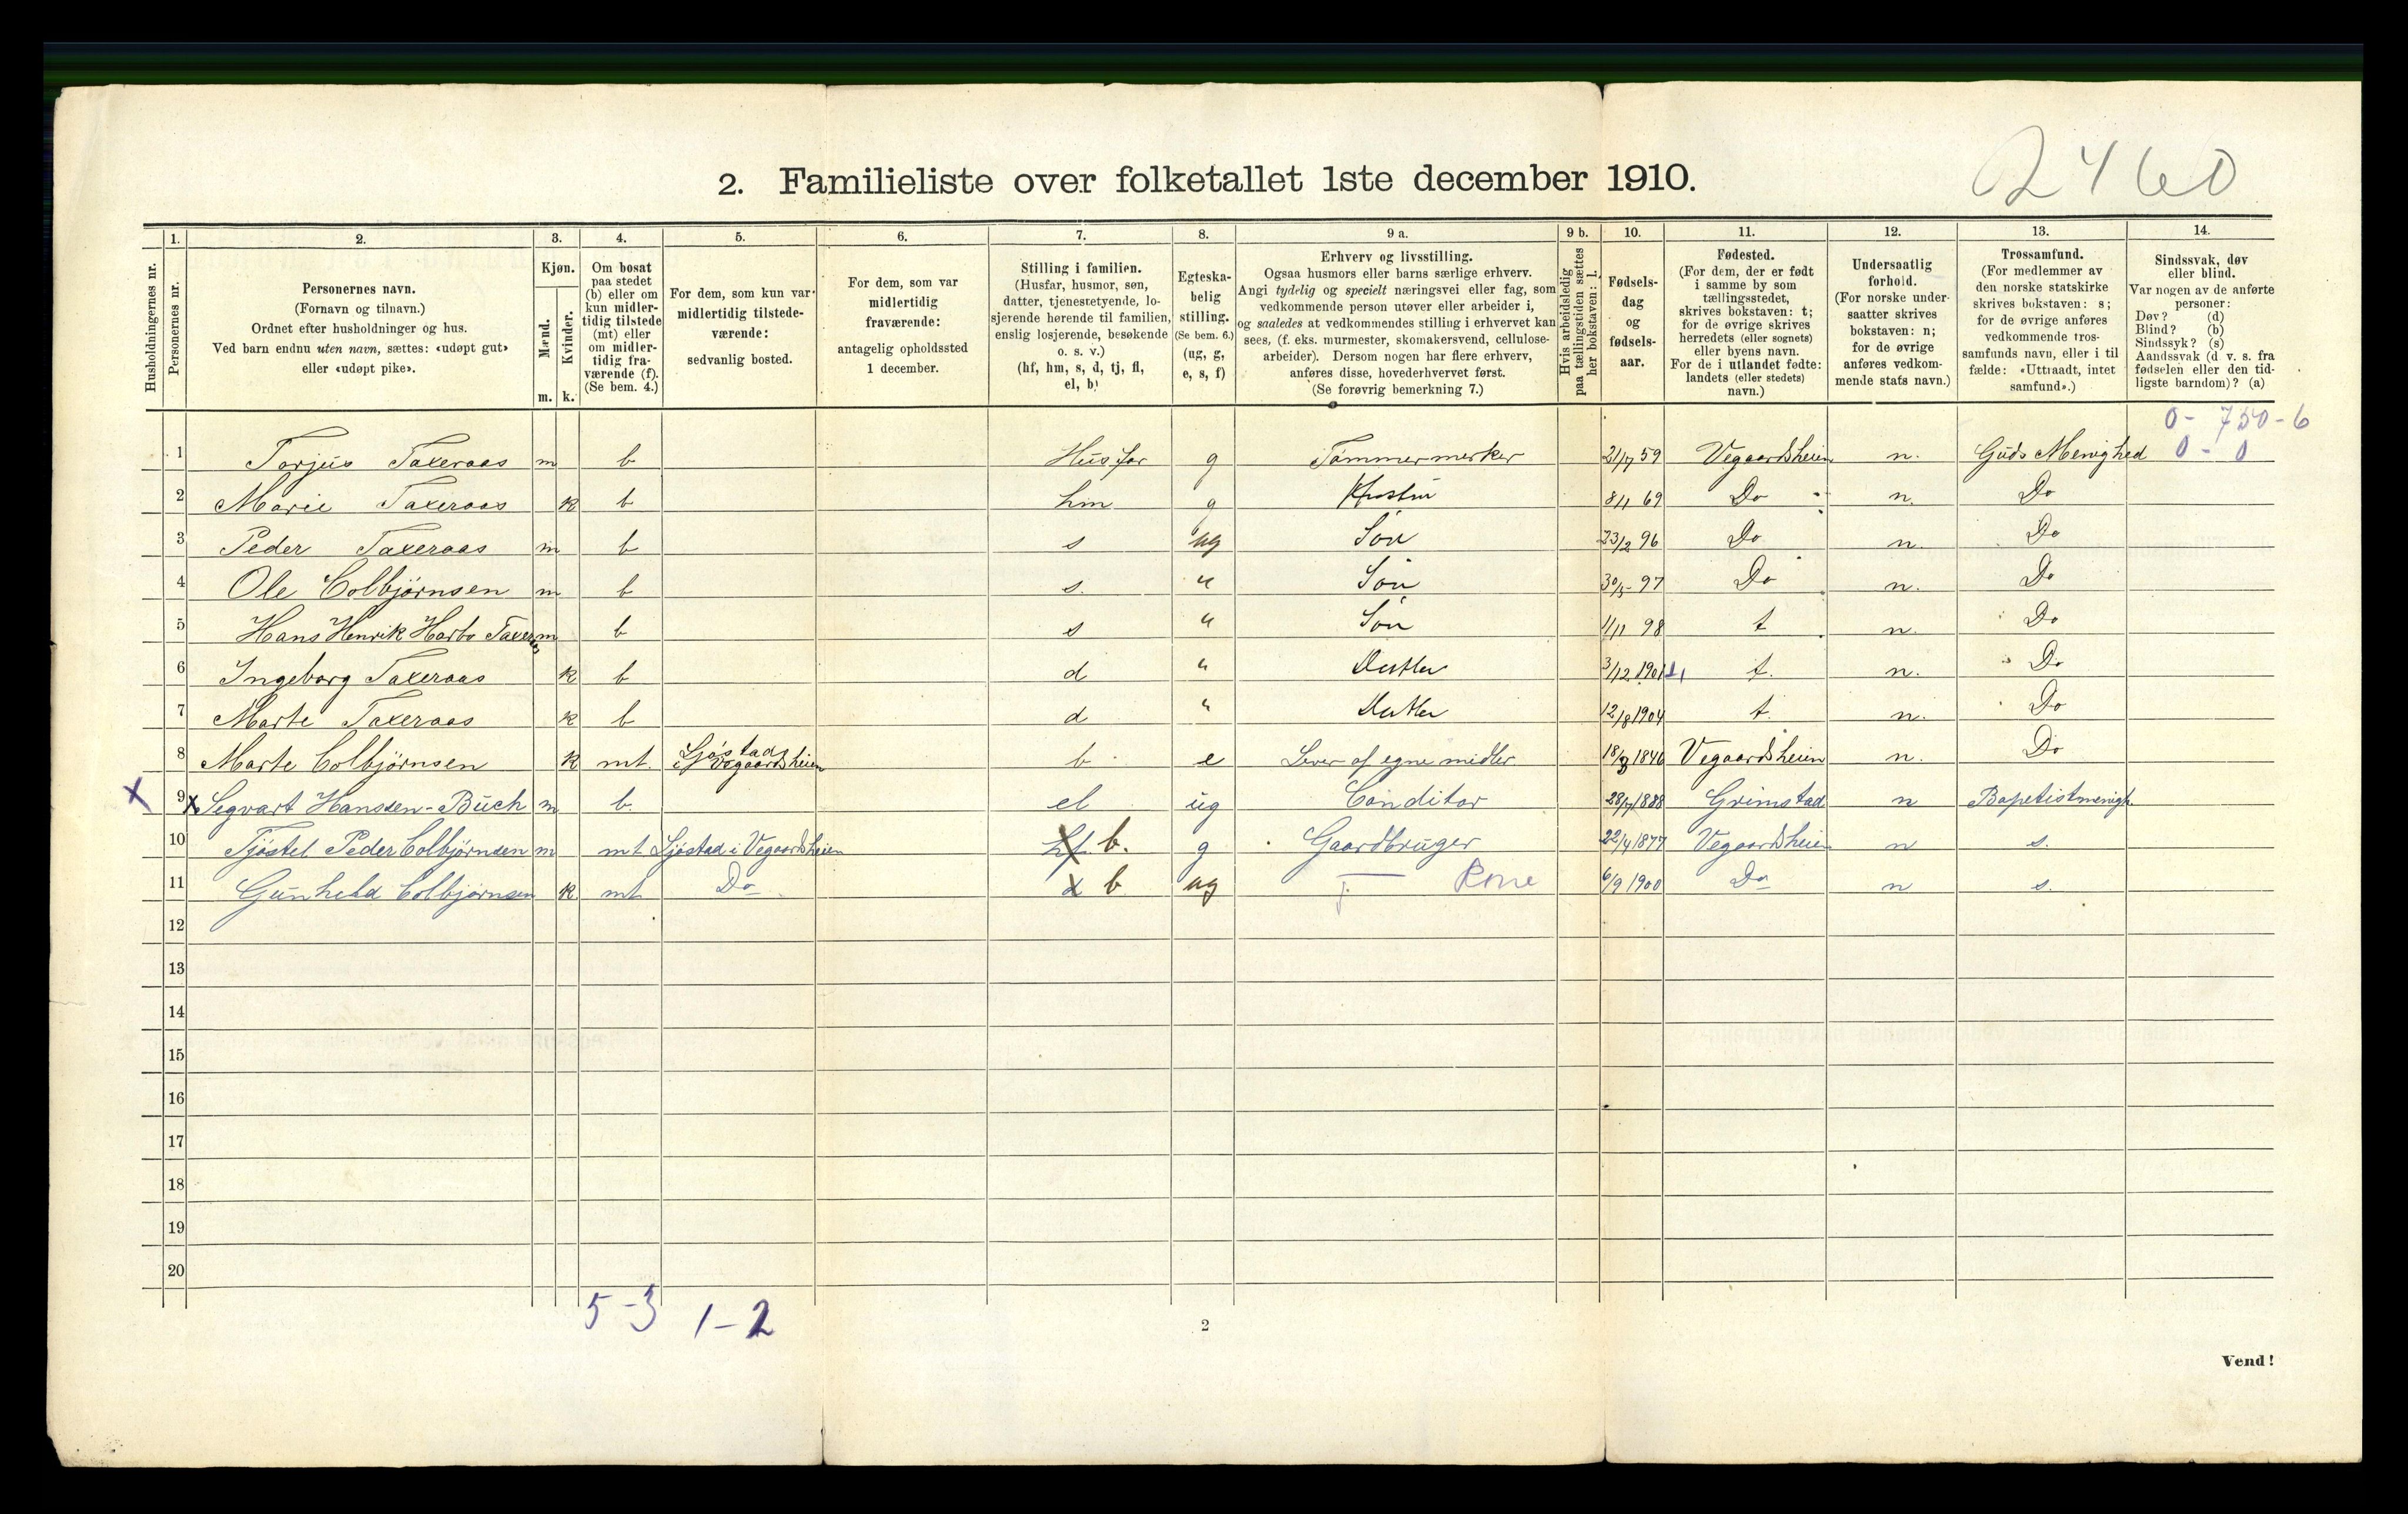 2460
2. Familieliste over folketallet 1ste december 1910.
Husholdningernes nr.
1. Personernes nr.
2. Personernes navn.
(Fornavn og tilnavn.)
Ordnet efter husholdninger og hus.
Ved barn endnu uten navn, sættes: «udøpt gut»
eller «udøpt pike».
3. Kjøn.
Mænd. Kvinder.
m. k.
4. Om bosat
paa stedet
(b) eller om
kun midler-
tidig tilstede
(mt) eller
om midler-
tidig fra-
værende (f).
(Se bem. 4.)
5. For dem, som kun var
midlertidig tilstede-
værende:
sedvanlig bosted.
6. For dem, som var
midlertidig
fraværende:
antagelig opholdssted
1 december.
7. Stilling i familien.
(Husfar, husmor, søn,
datter, tjenestetyende, lo-
sjerende hørende til familien,
enslig losjerende, besøkende
o. s. v.)
(hf, hm, s, d, tj, fl,
el, b)
8. Egteska-
belig
stilling.
(Se bem. 6.)
(ug, g,
e, s, f)
9 a. Erhverv og livsstilling.
Ogsaa husmors eller barns særlige erhverv.
Angi tydelig og specielt næringsvei eller fag, som
vedkommende person utøver eller arbeider i,
og saaledes at vedkommendes stilling i erhvervet kan
sees, (f. eks. murmester, skomakersvend, cellulose-
arbeider). Dersom nogen har flere erhverv,
anføres disse, hovederhvervet først.
(Se forøvrig bemerkning 7.)
9 b. Hvis arbeidsledig
paa tællingstiden sættes
her bokstaven: l.
10. Fødsels-
dag
og
fødsels-
aar.
11. Fødested.
(For dem, der er født
i samme by som
tællingsstedet,
skrives bokstaven: t;
for de øvrige skrives
herredets (eller sognets)
eller byens navn.
For de i utlandet fødte:
landets (eller stedets)
navn.)
12. Undersaatlig
forhold.
(For norske under-
saatter skrives
bokstaven: n;
for de øvrige
anføres vedkom-
mende stats navn.)
13. Trossamfund.
(For medlemmer av
den norske statskirke
skrives bokstaven: s;
for de øvrige anføres
vedkommende tros-
samfunds navn, eller i til
fælde: «Uttraadt, intet
samfund».)
14. Sindssvak, døv
eller blind.
Var nogen av de anførte
personer:
Døv? (d)
Blind? (b)
Sindssyk? (s)
Aandssvak (d v. s. fra
fødselen eller den tid-
ligste barndom)? (a)
0 - 750 - 6
1 Torjus Taxeraas m b Husfar g Tømmermerker 21/7 59 Vegaardsheien n. Guds Menighed 0 - 0
2 Marie Taxeraas k b hm g 8/1 69 Do n. Do
3 Peder Taxeraas m b s ug Søn 23/2 96 Do n. Do
4 Ole Colbjørnsen m b s. " Søn 30/5 97 Do n. Do
5 Hans Henrik Harbo Taxeraas m b s " Søn 1/11 98 t n. Do
6 Ingeborg Taxeraas k b d " Datter 3/12 1901 t. n. Do
7 Marte Taxeraas k b d " Datter 12/8 1904 t. n. Do
8 Marte Colbjørnsen k mt. Sjøstad i Vegaardsheien b e Lever af egne midler 18/3 1846 Vegaardsheien n. Do
X 9 x Segvart Hanssen-Buch m b. el ug Conditor 28/7 1888 Grimstad n Bapetistmenigh.
10 Tjøstel Peder Colbjørnsen m mt Sjøstad i Vegaardsheien hf b. g Gaardbruger 22/4 1877 Vegaardsheien n s.
11 Gunheld Colbjørnsen k mt Do d b ug 6/9 1900 Do n s.
12
13
14
15
16
17
18
19
20
5 - 3 1 - 2
2
Vend!